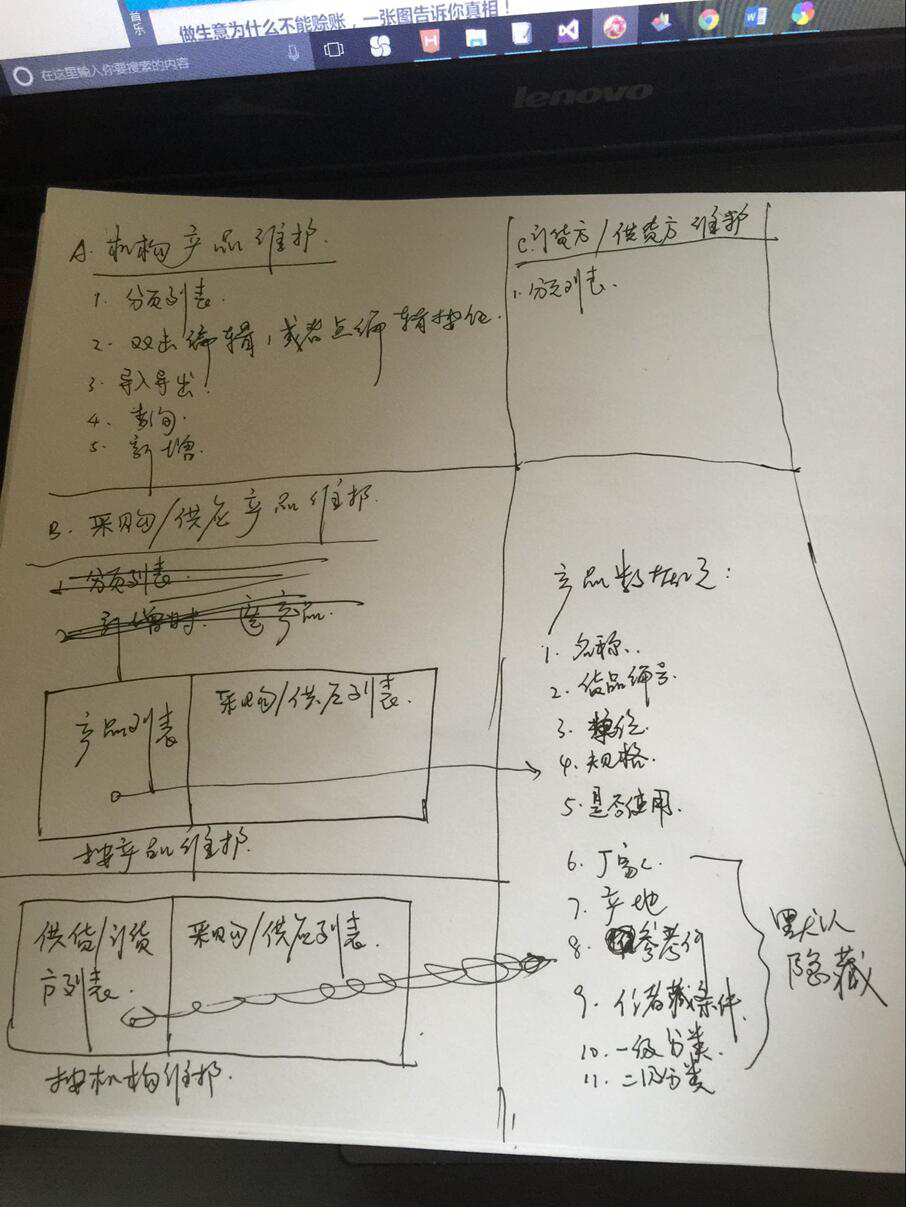 音乐
做生意为什么不能赊账，一张图告诉你真相！
在这里输入你要搜索的内容
lenovo
A. 机构产品维护.
1. 分页列表.
2. 双击编辑，或者点编辑按钮.
3. 导入导出.
4. 查询.
5. 新增.
C.订货方/供货方维护
1. 分页列表.
B. 采购/供应产品维护.
1. 分页列表.
2. 新增时. 选产品.
产品列表
采购/供应列表.
按产品维护.
供货/订货
方列表.
采购/供应列表.
按机构维护.
产品数据:
1. 名称.
2. 货品编号
3. 单位.
4. 规格.
5. 是否使用.
6. 厂家.
7. 产地
8. 参考价
9. 储藏条件.
10. 一级分类.
11. 二级分类
默认
隐藏